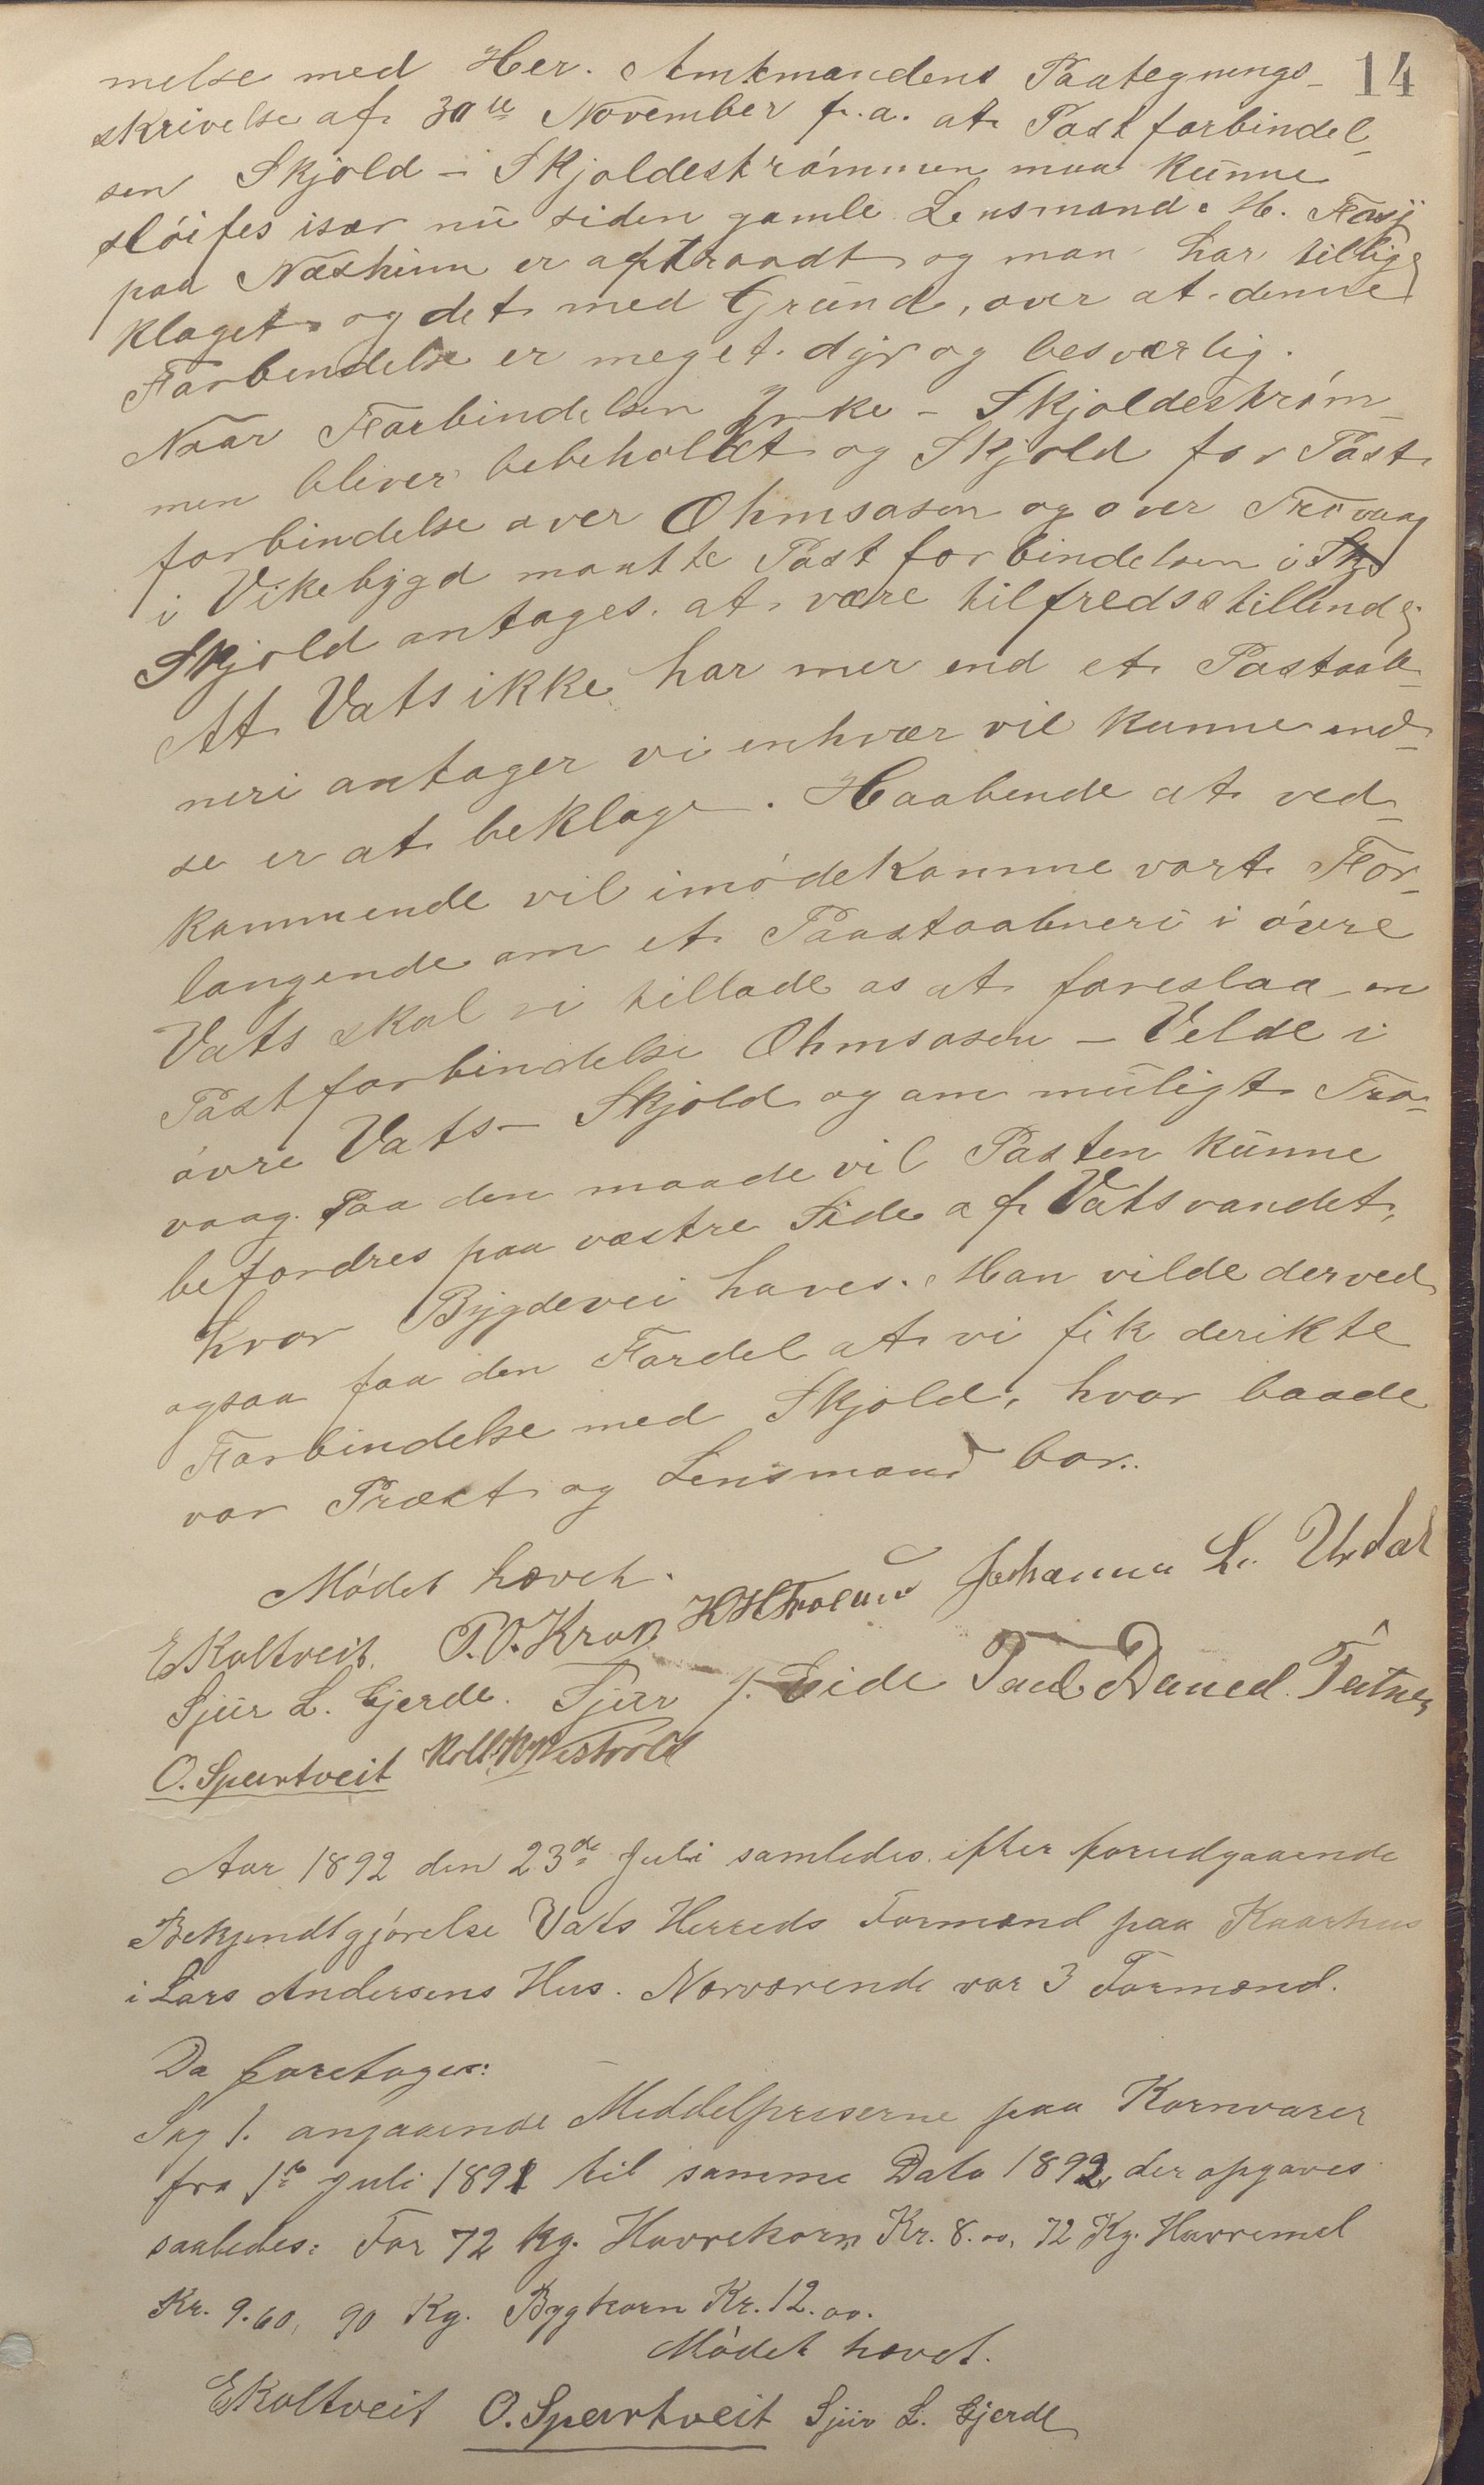 14
melse med Her. Amtmandens Paategnings-
skrivelse af 30te November f.a. at Postforbindel-
sen Skjold - Skjoldestrømmen maa kunne
sløifes især nu siden gamle Lensmand H.
paa Næsheim er aftraadt og man har tillige
klaget og det med Grund, over at denne
Forbindelse er meget dyr og besværlig.
Naar Forbindelsen Yrke - Skjoldestrøm-
men bliver bebeholdt og Skjold for Post
forbindelse over Ohmsosen og over Trovaag
i Vikebygd maatte Postforbindelsen i
Skjold antages at være tilfredsstillende
At Vats ikke har mer end et Postaab-
neri antager vi enhvær vil kunne ind-
se er at beklage. Haabende at ved-
kommende vil imødekomme vort For-
langende om et Paastaabneri i øvre
Vats skal vi tillade os at foreslaa en
Postforbindelse Ohmsosen - Velde i
øvre Vats - Skjold og om muligt Tro-
vaag. Paa den maade vil Posten kunne
befordres paa vestre Side af Vatsvandet,
hvor Bygdevei haves. Man vilde derved
ogsaa faa den Fordel at vi fik derikte
Forbindelse med Skjold, hvor baade
vor Præst og Lensmand bor.
Mødet hævet.
E Koltveit. P.O. Krak Johannes L. Urdal
Sjur L. Gjerde. Sjur J. Eide Paul Daniel
O. Spartveit
Aar 1892 den 23de Juli samledes efter forudgaaende
Bekjendtgjørelse Vats Herreds Formænd paa Kaarhus
i Lars Andersens Hus. Nærværende var 3 Formænd.
Da foretoges:
Sag 1. angaaende Middelpriserne paa Kornvarer
fra 1ste Juli 1891 til samme Dato 1892, der opgaves
saaledes: For 72 kg. Havrekorn Kr. 8.00, 72 Kg. Havremel
Kr. 9.60, 90 Kg. Bygkorn Kr. 12.00.
Mødet hævet.
E Koltveit O. Spartveit Sjur L. Gjerde